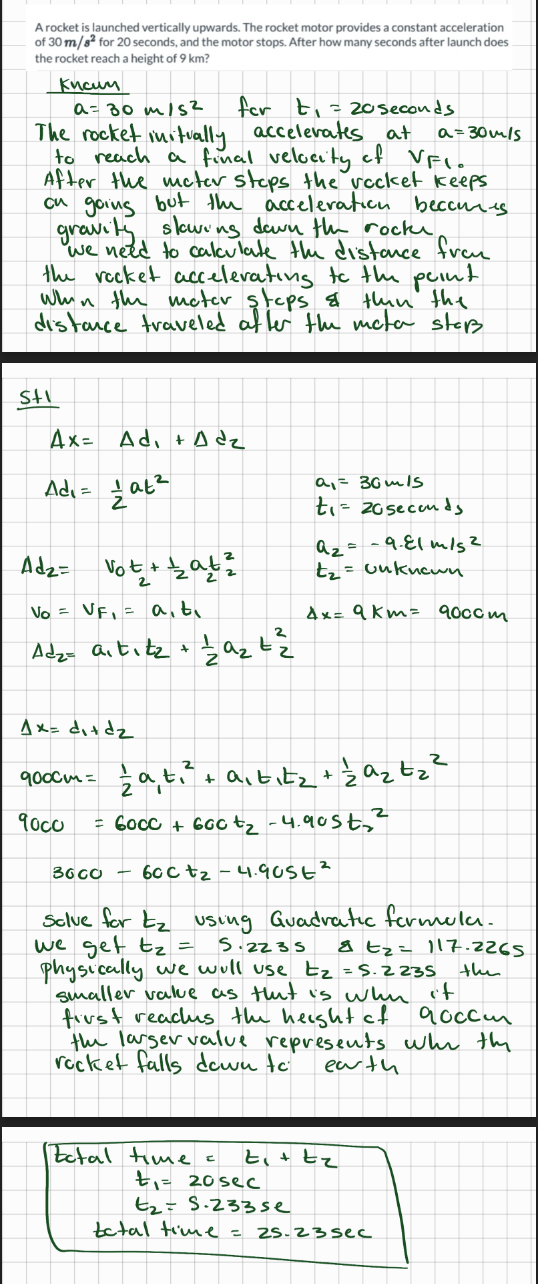 A rocket is launched vertically upwards. The rocket motor provides a constant acceleration
of 30 m/s² for 20 seconds, and the motor stops. After how many seconds after launch does
the rocket reach a height of 9 km?
Known
a = 30 m/s² for t₁ = 20 seconds
The rocket initially accelerates at a=30m/s
to reach a final velocity of VF₁.
After the motor stops the rocket keeps
on going but the acceleration becomes
gravity slowing down the rocker
we need to calculate the distance from
the rocket accelerating to the point
when the motor stops & then the
distance traveled after the motor stops
St1
Δx = Δd₁ + Δd₂
Δd₁ = 1/2 at²
a₁ = 30m/s
t₁ = 20seconds
Δd₂ = V₀t₂ + 1/2 a₂t₂²
a₂ = -9.81 m/s²
t₂ = unknown
V₀ = VF₁ = a₁t₁
Δx = 9 Km = 9000 m
Δd₂ = a₁t₁t₂ + 1/2 a₂ t₂²
Δx = d₁+d₂
9000m = 1/2 a₁t₁² + a₁t₁t₂ + 1/2 a₂t₂²
9000 = 6000 + 600t₂ - 4.905t₂²
3000 - 600t₂ - 4.905t²
Solve for t₂ using Quadratic formula.
we get t₂ = 5.223s & t₂ = 117.226s
physically we will use t₂ = 5.223s the
smaller value as that is when it
first reaches the height of 9000m
the larger value represents when the
rocket falls down to earth
total time = t₁ + t₂
t₁ = 20sec
t₂ = 5.233se
total time = 25.23sec